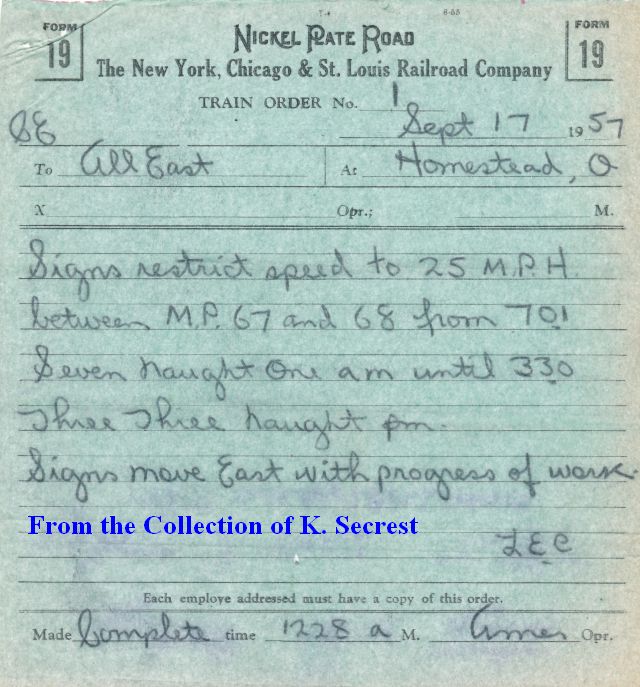 8-55
FORM 19
NICKEL PLATE ROAD
FORM 19
The New York, Chicago & St. Louis Railroad Company
TRAIN ORDER No. 1
Sept 17 1957
To All East At Homestead, O
X Opr.; M.
Signs restrict speed to 25 M.P.H.
between M.P. 67 and 68 from 701
Seven naught One am until 330
Three Three naught pm.
Signs move East with progress of work.
From the Collection of K. Secrest
L.E.C
Each employe addressed must have a copy of this order.
Made Complete time 1228 a M. Ames Opr.